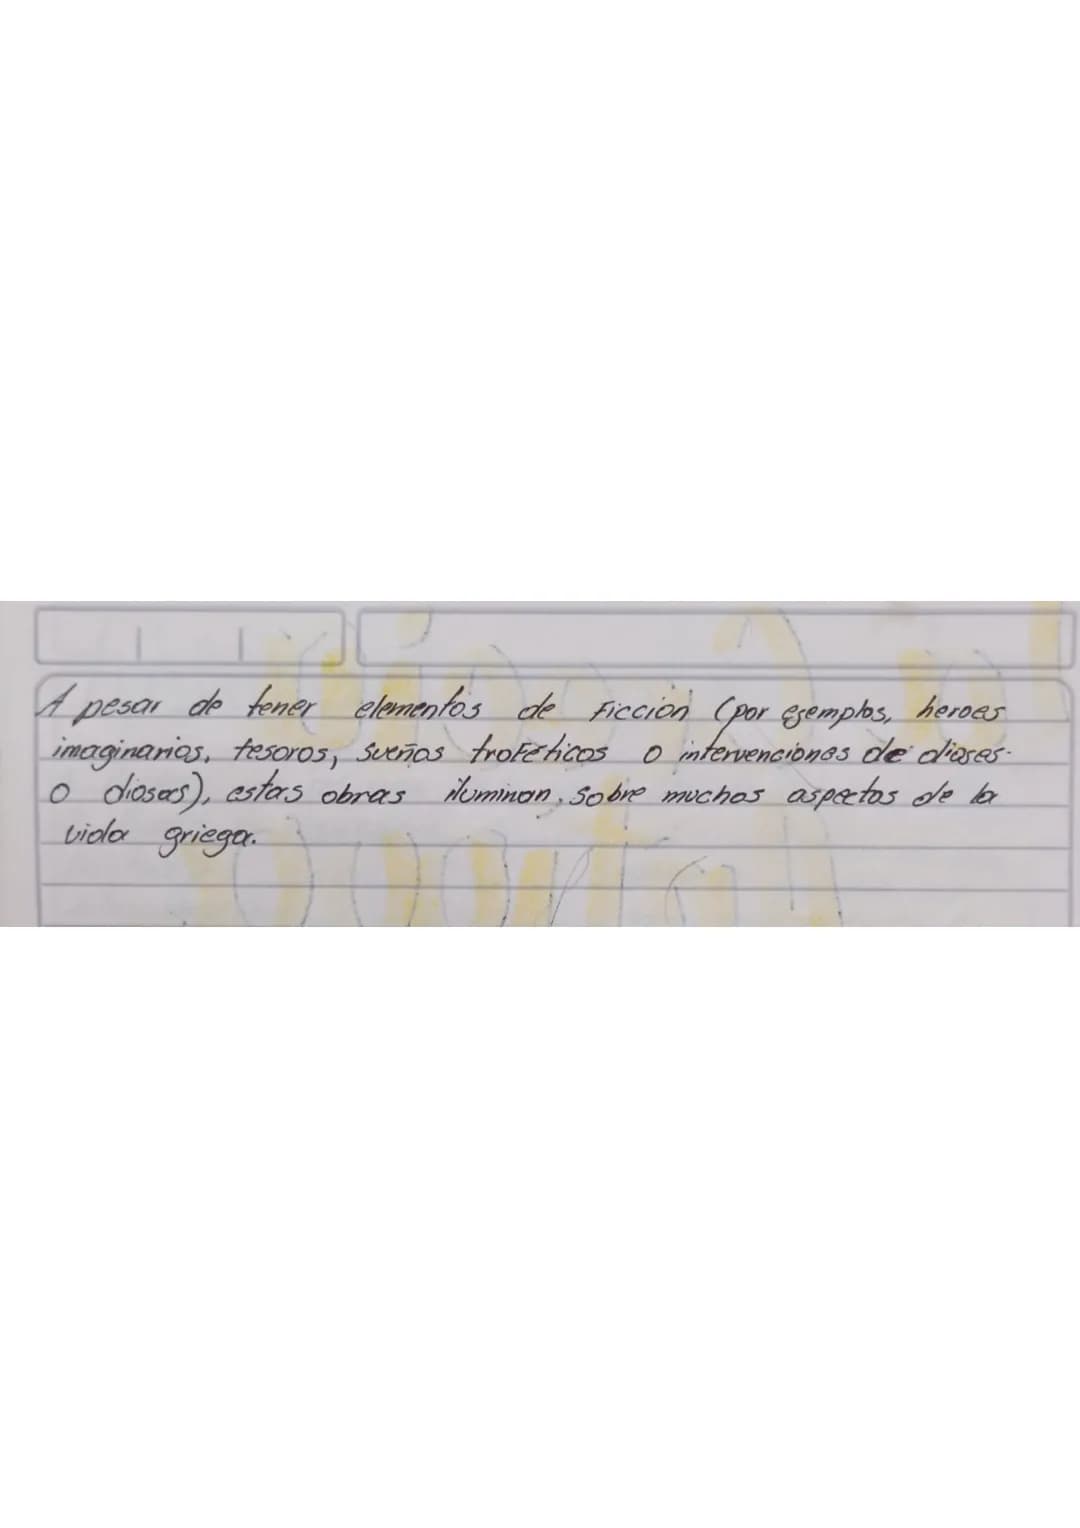 A pesar de tener elementos de Ficción (por egemplos, heroes
imaginarios, tesoros, sueños trofeticos o intervenciones de dioses
o diosas), estas obras iluminan, sobre muchos aspectos de la
vida griega.